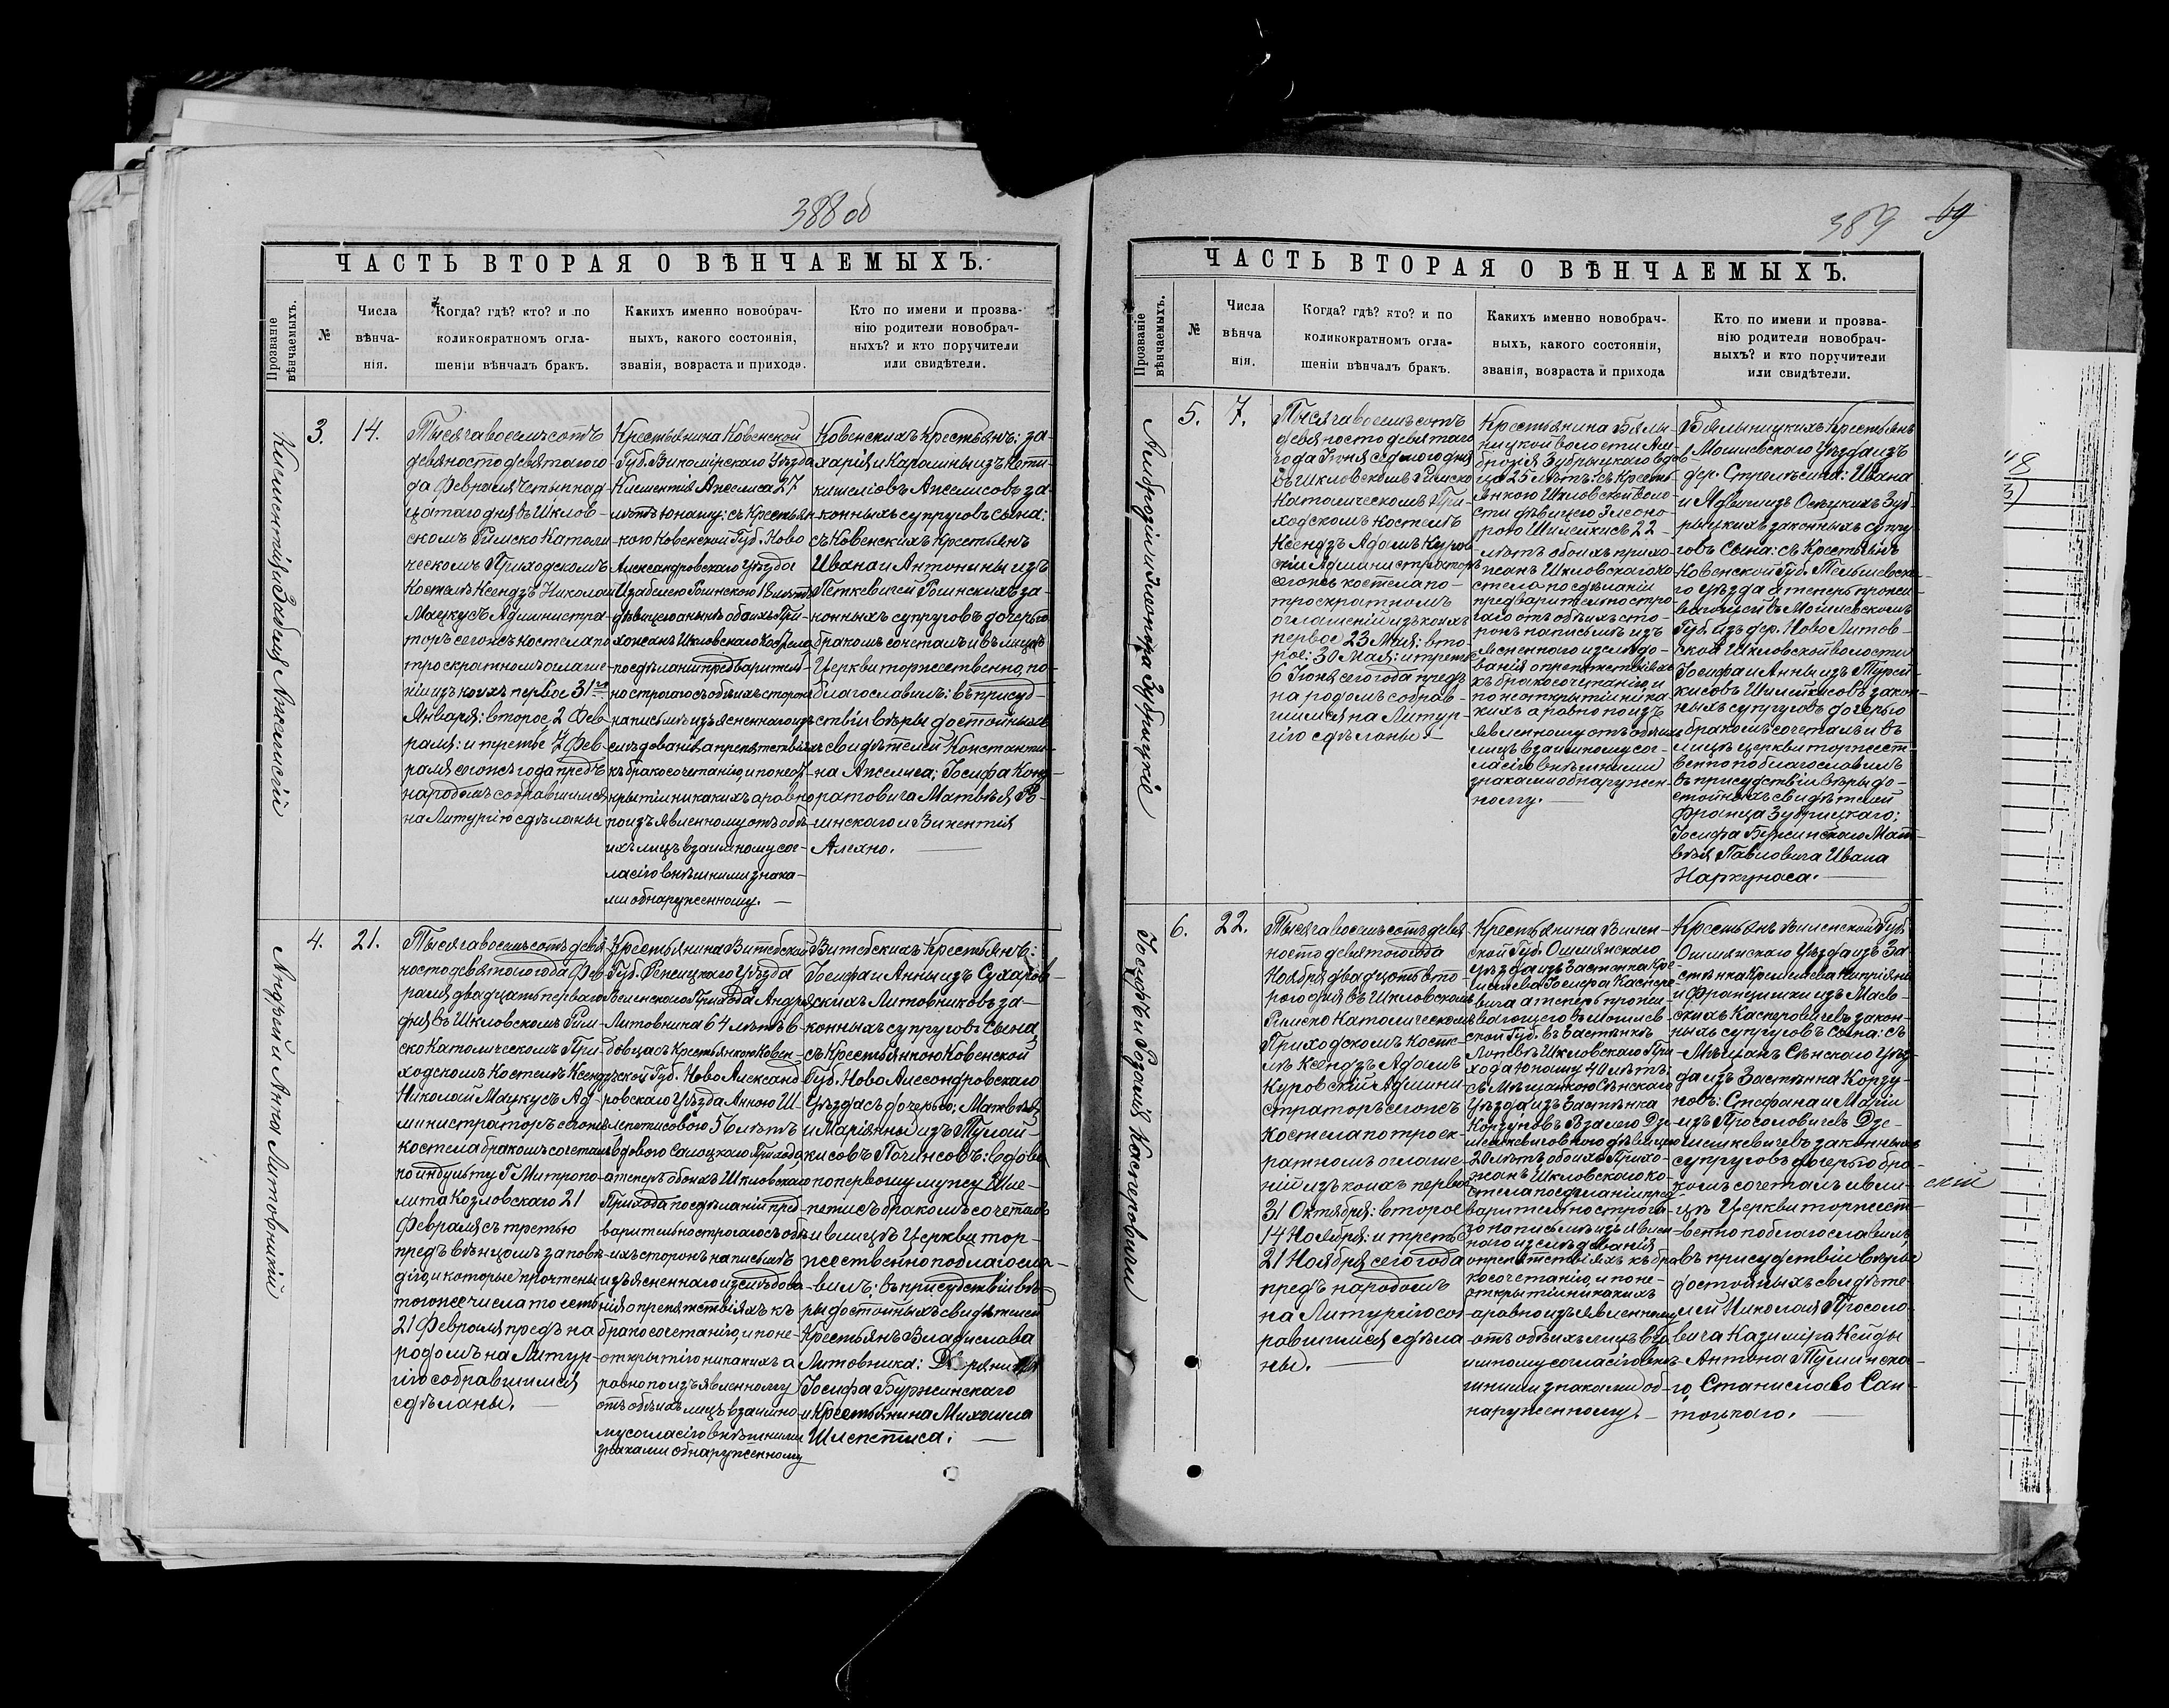 388 об
ЧАСТЬ ВТОРАЯ О ВѢНЧАЕМЫХЪ.
Прозваніе
вѣнчаемыхъ.
№
Числа
вѣнча-
нія.
Когда? гдѣ? кто? и по
коликократномъ огла-
шеніи вѣнчалъ бракъ.
Какихъ именно новобрач-
ныхъ, какого состоянія,
званія, возраста и прихода.
Кто по имени и прозва-
нію родители новобрач-
ныхъ? и кто поручители
или свидѣтели.
3.
14.
Тысяча восемьсотъ
девяносто девятаго го-
да Февраля Четырнад-
цатаго дня въ Шклов-
скомъ Римско Католи-
ческомъ Приходскомъ
Костелѣ Ксендзъ Николай
Мацкусъ Администра-
торъ сегожъ костела по
троекратномъ оглаше-
ніи изъ коихъ первое 31го
Января: второе 2 Фев-
раля: и третье 7 Фев-
раля сегожъ года предъ
народомъ собравшимся
на Литургію сдѣланы
Крестьянина Ковенской
Губ. Вилкомірскаго Уѣзда
Климентія Анселиса 27
лѣтъ юношу: съ Крестьян-
кою Ковенской Губ. Ново
Александровскаго уѣзда
дѣвицею а нынѣ обоихъ При-
хожанъ Шкловскаго Костела
по сдѣланіи предваритель-
но строгаго съ обѣихъ сторонъ
на письмѣ изъясненнаго из-
слѣдованія о препятствіяхъ
къ бракосочетанію, и по неот-
крытіи никакихъ а равно
по изъявленному отъ обѣ-
ихъ лицъ взаимному сог-
ласію внѣшними знака-
ми обнаруженному. —
Ковенскихъ Крестьянъ: За-
харія и Каролины изъ
конныхъ супруговъ сына:
съ Ковенскихъ Крестьянъ
Ивана и Антонины изъ
Петкевичей за-
конныхъ супруговъ дочерью
бракомъ сочеталъ и въ лицѣ
Церкви торжественно по-
благословилъ: въ присуд-
ствіи вѣры достойныхъ
свидѣтелей Константи-
на Анселиса; Іосифа Конд-
ратовича Матвѣя Ро-
шинскаго и Викентія
Алехно. —
4.
21.
Андрей и Анна Литовникій
Тысяча восемьсотъ девя-
носто девятаго года Фев-
раля двадцать перваго
дня въ Шкловскомъ Рим-
ско Католическомъ При-
ходскомъ Костелѣ Ксендзъ
Николай Мацкусъ Ад-
министраторъ сегожъ
костела бракомъ сочеталъ
по индульту Г. Митропо-
лита Козловскаго 21
Февраля съ третью
предъ вѣнцомъ заповѣ-
дію, и которые прочтены
тогоже числа то есть
21 Февраля предъ на-
родомъ на Литур-
гію собравшимся
сдѣланы. —
Крестьянина Витебской
Губ. Режицкаго Уѣзда
Прихода Андрея
Литовника 64 лѣтъ в-
довца съ Крестьянкою Ковен-
ской Губ. Ново Александ-
ровскаго Уѣзда Анною Ш-
лепетисовою 56 лѣтъ
вдовою Прихода,
а теперь обоихъ Шкловскаго
Прихода по сдѣланіи пред-
варительно строгаго съ обѣ-
ихъ сторонъ на письмѣ
изъясненнаго изслѣдова-
нія о препятствіяхъ къ
бракосочетанію, и по не-
открытію никакихъ а
равно по изъявленному
отъ обѣихъ лицъ взаимно-
му согласію внѣшними
знаками обнаруженному
Витебскихъ Крестьянъ:
Іосифа и Анны изъ Сухаров-
скихъ Литовниковъ за-
конныхъ супруговъ сына,
съ Крестьянкою Ковенской
Губ. Ново Александровскаго
Уѣзда съ дочерью; Матвѣя
и Маріянны изъ Тулай-
кисовъ Починсовъ: вдова
по первому мужу Шле-
петисъ бракомъ сочеталъ
и въ лицѣ Церкви тор-
жественно поблагосло-
вилъ: въ присудствіи вѣ-
ры достойныхъ свидѣтелей
Крестьянъ Владислава
Литовника:
Іосифа Буржинскаго
и Крестьянина Михаила
Шлепетиса. —
389
69
ЧАСТЬ ВТОРАЯ О ВѢНЧАЕМЫХЪ.
Прозваніе
вѣнчаемыхъ.
№
Числа
вѣнча
нія.
Когда? гдѣ? кто? и по
коликократномъ огла-
шеніи вѣнчалъ бракъ.
Какихъ именно новобрач-
ныхъ, какого состоянія,
званія, возраста и прихода
Кто по имени и прозва-
нію родители новобрач-
ныхъ? и кто поручители
или свидѣтели.
5.
7.
Амброзій и Элеонора Зубрицкіе
Тысяча восемьсотъ
девяносто девятаго
года Іюня седьмого дня
въ Шкловскомъ Римско
Католическомъ При-
ходскомъ костелѣ
Ксендзъ Адамъ Куров-
скій Администраторъ
сегожъ костела по-
троекратномъ
оглашеніи изъ коихъ
первое 23 Мая: вто-
рое: 30 Мая: и третье
6 Іюня сего года предъ
народомъ собрав-
шимся на Литур-
гію сдѣланы. —
Крестьянина Бялы-
ницкой волости Ам-
брозія Зубрыцкаго вдов-
ца 25 лѣтъ: съ Кресть-
янкою Шкловской воло-
сти дѣвицею Элеоно-
рою Шилейкисъ 22-
лѣтъ обоихъ прихо-
жанъ Шкловскаго ко-
стела по сдѣланіи
предварительно стро-
гаго отъ обѣихъ сто-
ронъ на письмѣ изъ-
ясненнаго изслѣдо-
ванія о препятствіяхъ
къ бракосочетанію, и
по не открытіи ника-
кихъ а равно по изъ-
явленному отъ обѣихъ
лицъ взаимному сог-
ласію внѣшними
знаками обнаружен-
ному. —
Бялыницкихъ Крестьянъ
Могилевскаго Уѣзда изъ
дер. Ивана
и Ядвиги изъ Зуб-
рыцкихъ законныхъ супру-
говъ Сына: съ Крестьянъ
Ковенской Губ. Тельшевска-
го уѣзда а теперь прожи-
вающей въ Могилевскомъ
Губ. изъ дер. Ново Литов-
ской Шкловской волости
Іосифа и Анны изъ
Шилейкисовъ закон-
ныхъ супруговъ дочерью
бракомъ сочеталъ и въ
лицѣ церкви торжест-
венно поблагословилъ
въ присудствіи вѣры до-
стойныхъ свидѣтелей
Франца Зубрицкаго;
Іосифа Мат-
вѣя Павловича Ивана
Наркунаса. —
6.
22.
Іосифъ и Розалія Касперовичи
Тысяча восемьсотъ девя-
носто девятаго года
Ноября двадцать вто-
рого дня въ Шкловскомъ
Римско Католическомъ
Приходскомъ Косте-
лѣ Ксендзъ Адамъ
Куровскій Админи-
страторъ сегожъ
Костела по троек-
ратномъ оглаше-
ніи изъ коихъ первое
31 Октября: второе
14 Ноября: и третье
21 Ноября сего года
предъ народомъ
на Литургію соб-
равшимся сдѣла-
ны. —
Крестьянина Вилен-
ской Губ. Ошмянскаго
Уѣзда изъ Застенка Кре-
Іосифа Каспере-
вича а теперь прожи-
вающего въ Могилев-
ской Губ. въ Застѣнкѣ
Шкловскаго При-
хода юношу 40 лѣтъ:
съ Мѣщанкою Сѣнскаго
Уѣзда изъ Застѣнка
Корзуновъ Розалею Дзе-
мешкевичовною дѣвицею
20 лѣтъ обоихъ Прихо-
жанъ Шкловскаго ко-
стела по сдѣланіи пред-
варительно строга-
го на письмѣ изъявлен-
ного изслѣдованія
о препятствіяхъ къ бра-
косочетанію, и по не-
открытіи никакихъ
а равно изъявленному
отъ обѣихъ лицъ вза-
имному согласію внѣ-
шними знаками об-
наруженному. —
Крестьянъ Виленской Губ.
Ошмянскаго Уѣзда изъ За-
стѣнка
и Францишки изъ Маев-
скихъ Касперовичевъ закон-
ныхъ супруговъ сына: съ
Мѣщанъ Сѣнскаго Уѣз-
да изъ Застѣнка Корзу-
новъ: Стефана и Маріи
изъ Дзе-
мешкевичевъ законныхъ
супруговъ дочерью бра-
комъ сочеталъ и въ ли-
цѣ Церкви торжест-
венно поблагословилъ
въ присудствіи вѣры
достойныхъ свидѣте-
лей Николая
Казиміра Кейды
Антона Туминска-
го, Станислава Сан-
тоцкаго. —